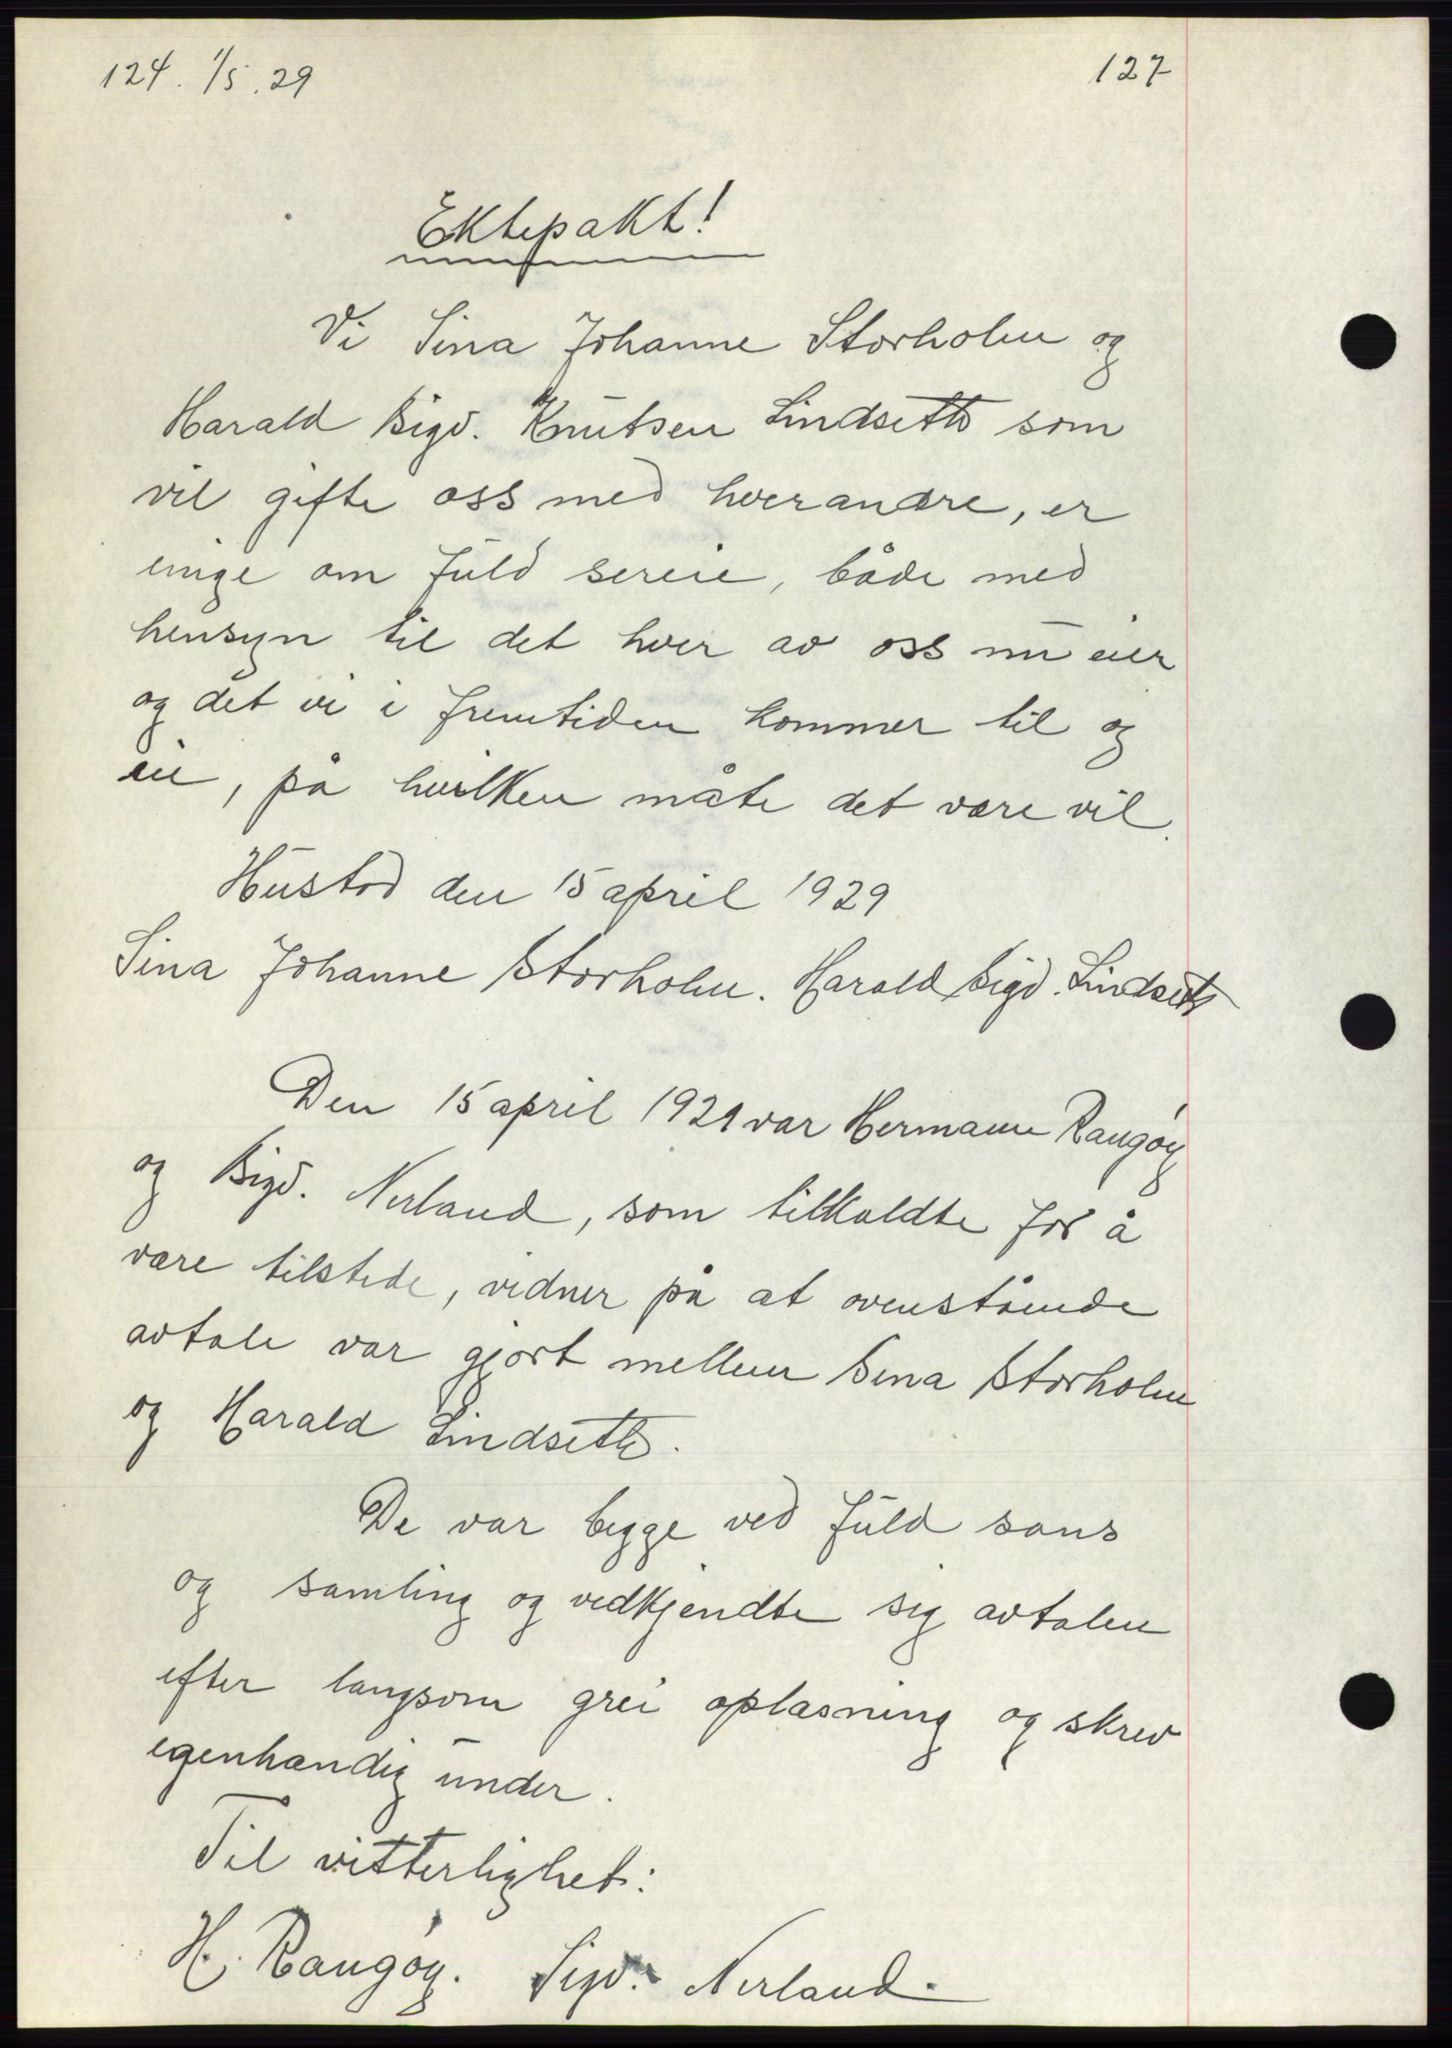 124. 1/5.29
127
Ektepakt!
Vi Sina Johanne Storholm og
Harald Sigv. Knutsen Lindseth som
vil gifte oss med hverandre, er
enige om fuld sereie, både med
hensyn til det hver av oss nu eier
og det vi i fremtiden kommer til og
eie, på hvilken måte det være vil.
Hustad den 15 april 1929
Sina Johanne Storholm. Harald Sigv. Lindseth
Den 15 april 1929 var Hermann Raugøy
og Sigv. Nerland, som tilkaldte for å
være tilstede, vidner på at ovenstående
avtale var gjort mellem Sina Storholm
og Harald Lindseth.
De var begge ved fuld sans
og samling og vedkjendte sig avtalen
efter langsom grei oplæsning og skrev
egenhændig under.
Til vitterlighet:
H. Raugøy. Sigv. Nerland.